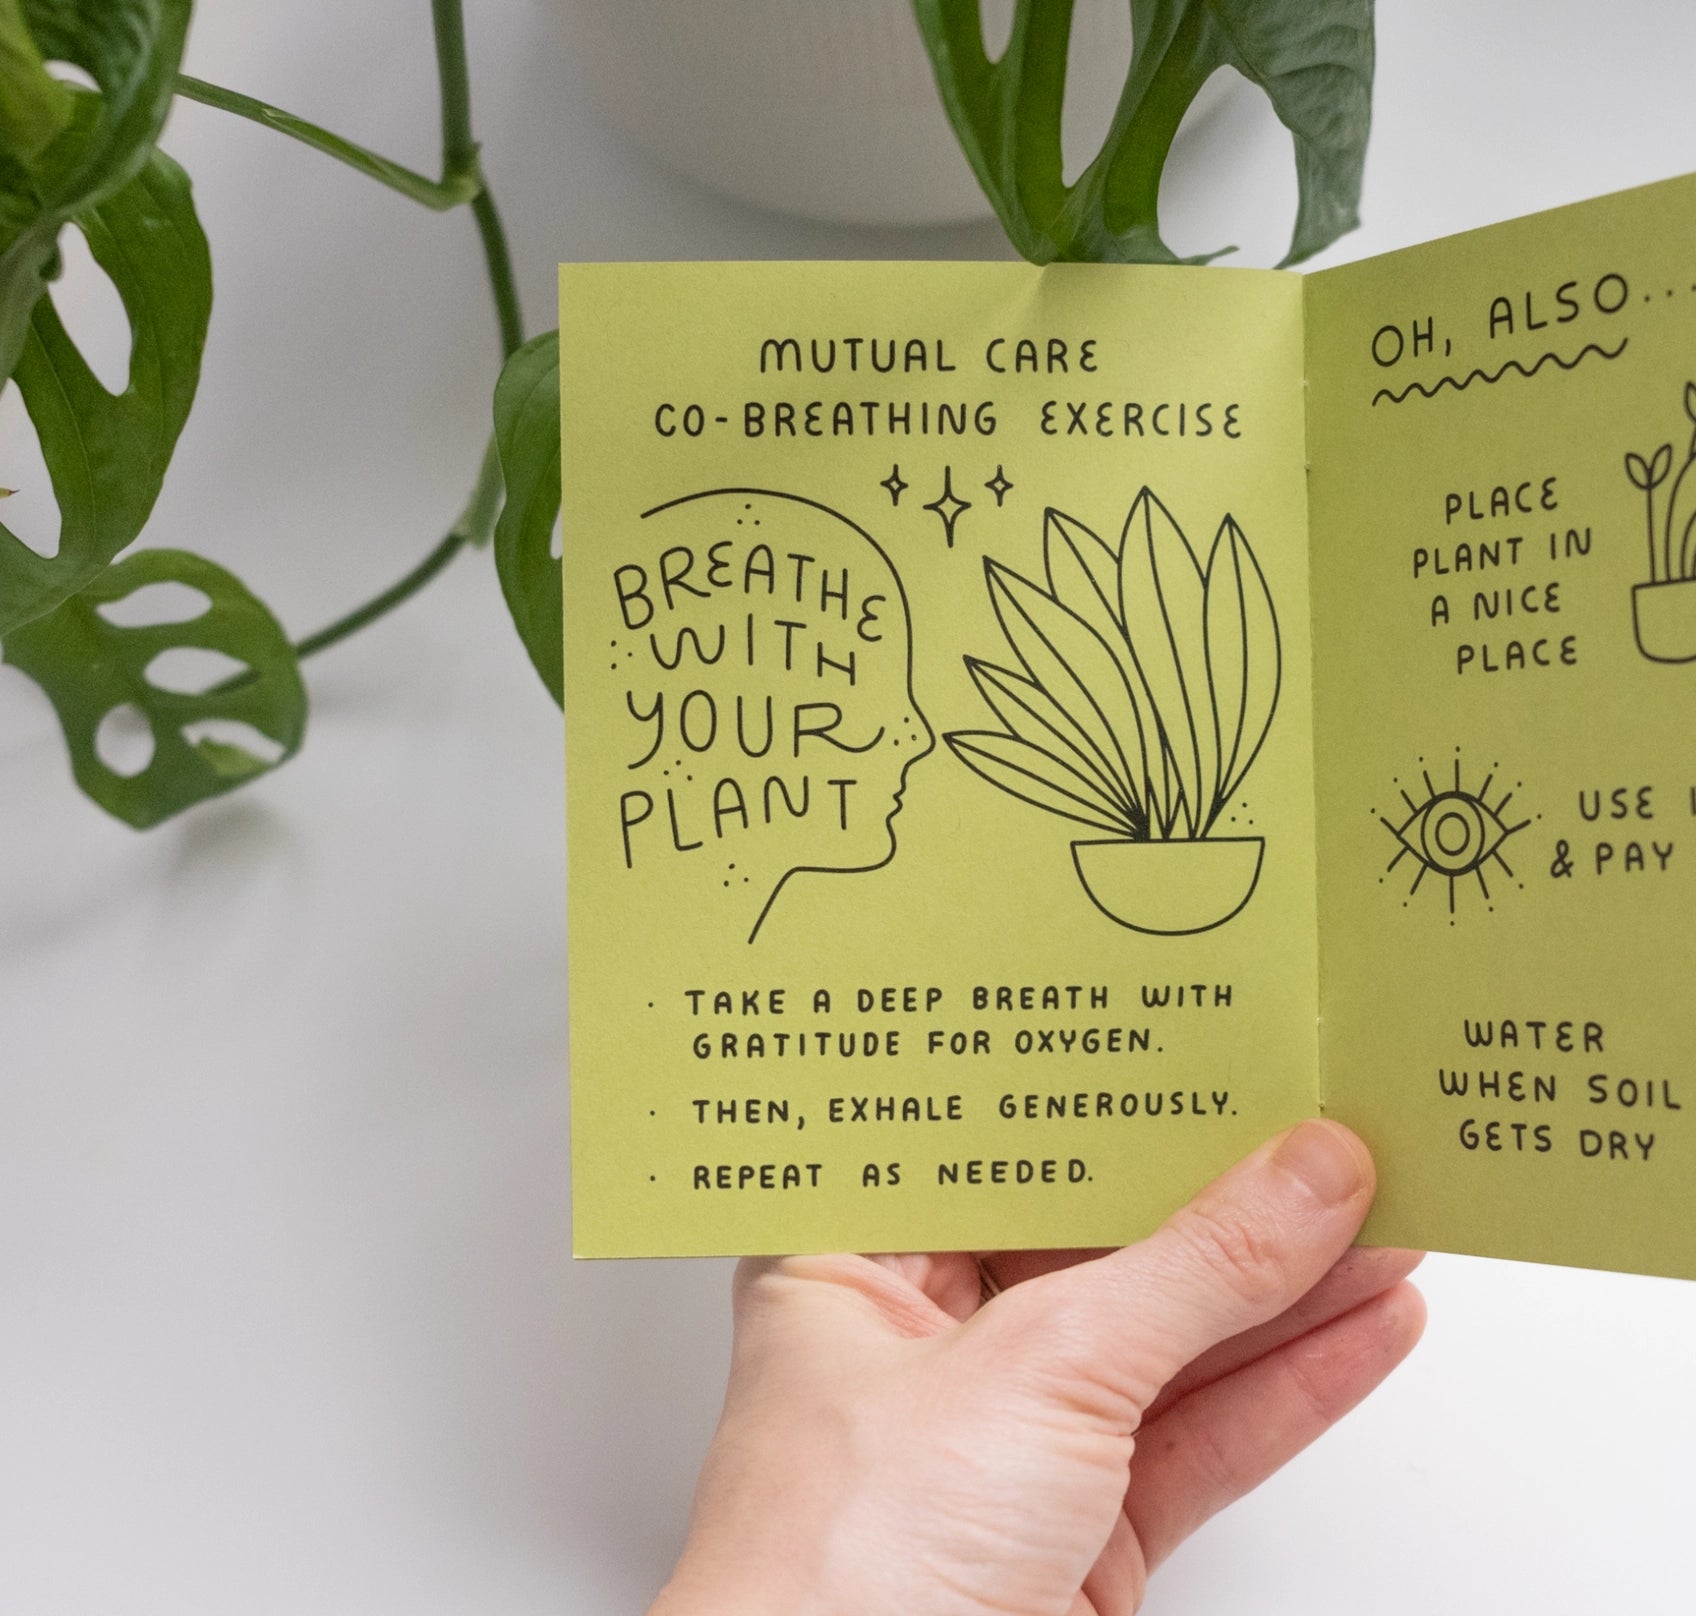 MUTUAL CARE
CO-BREATHING EXERCISE
BREATHE
WITH
YOUR
PLANT
· TAKE A DEEP BREATH WITH
GRATITUDE FOR OXYGEN.
· THEN, EXHALE GENEROUSLY.
· REPEAT AS NEEDED.
OH, ALSO...
PLACE
PLANT IN
A NICE
PLACE
USE
& PAY
WATER
WHEN SOIL
GETS DRY